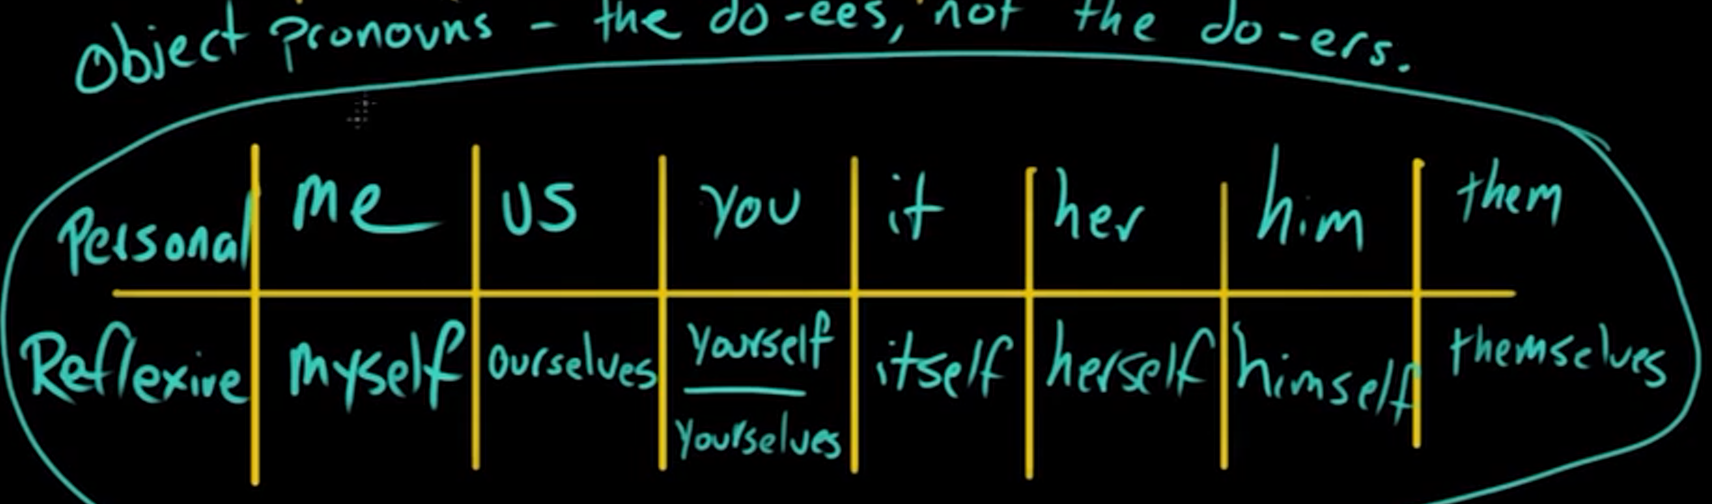 Object pronouns - the do-ees, not the do-ers.
Personal me us you it her him them
Reflexive myself ourselves yourself itself herself himself themselves
yourselves